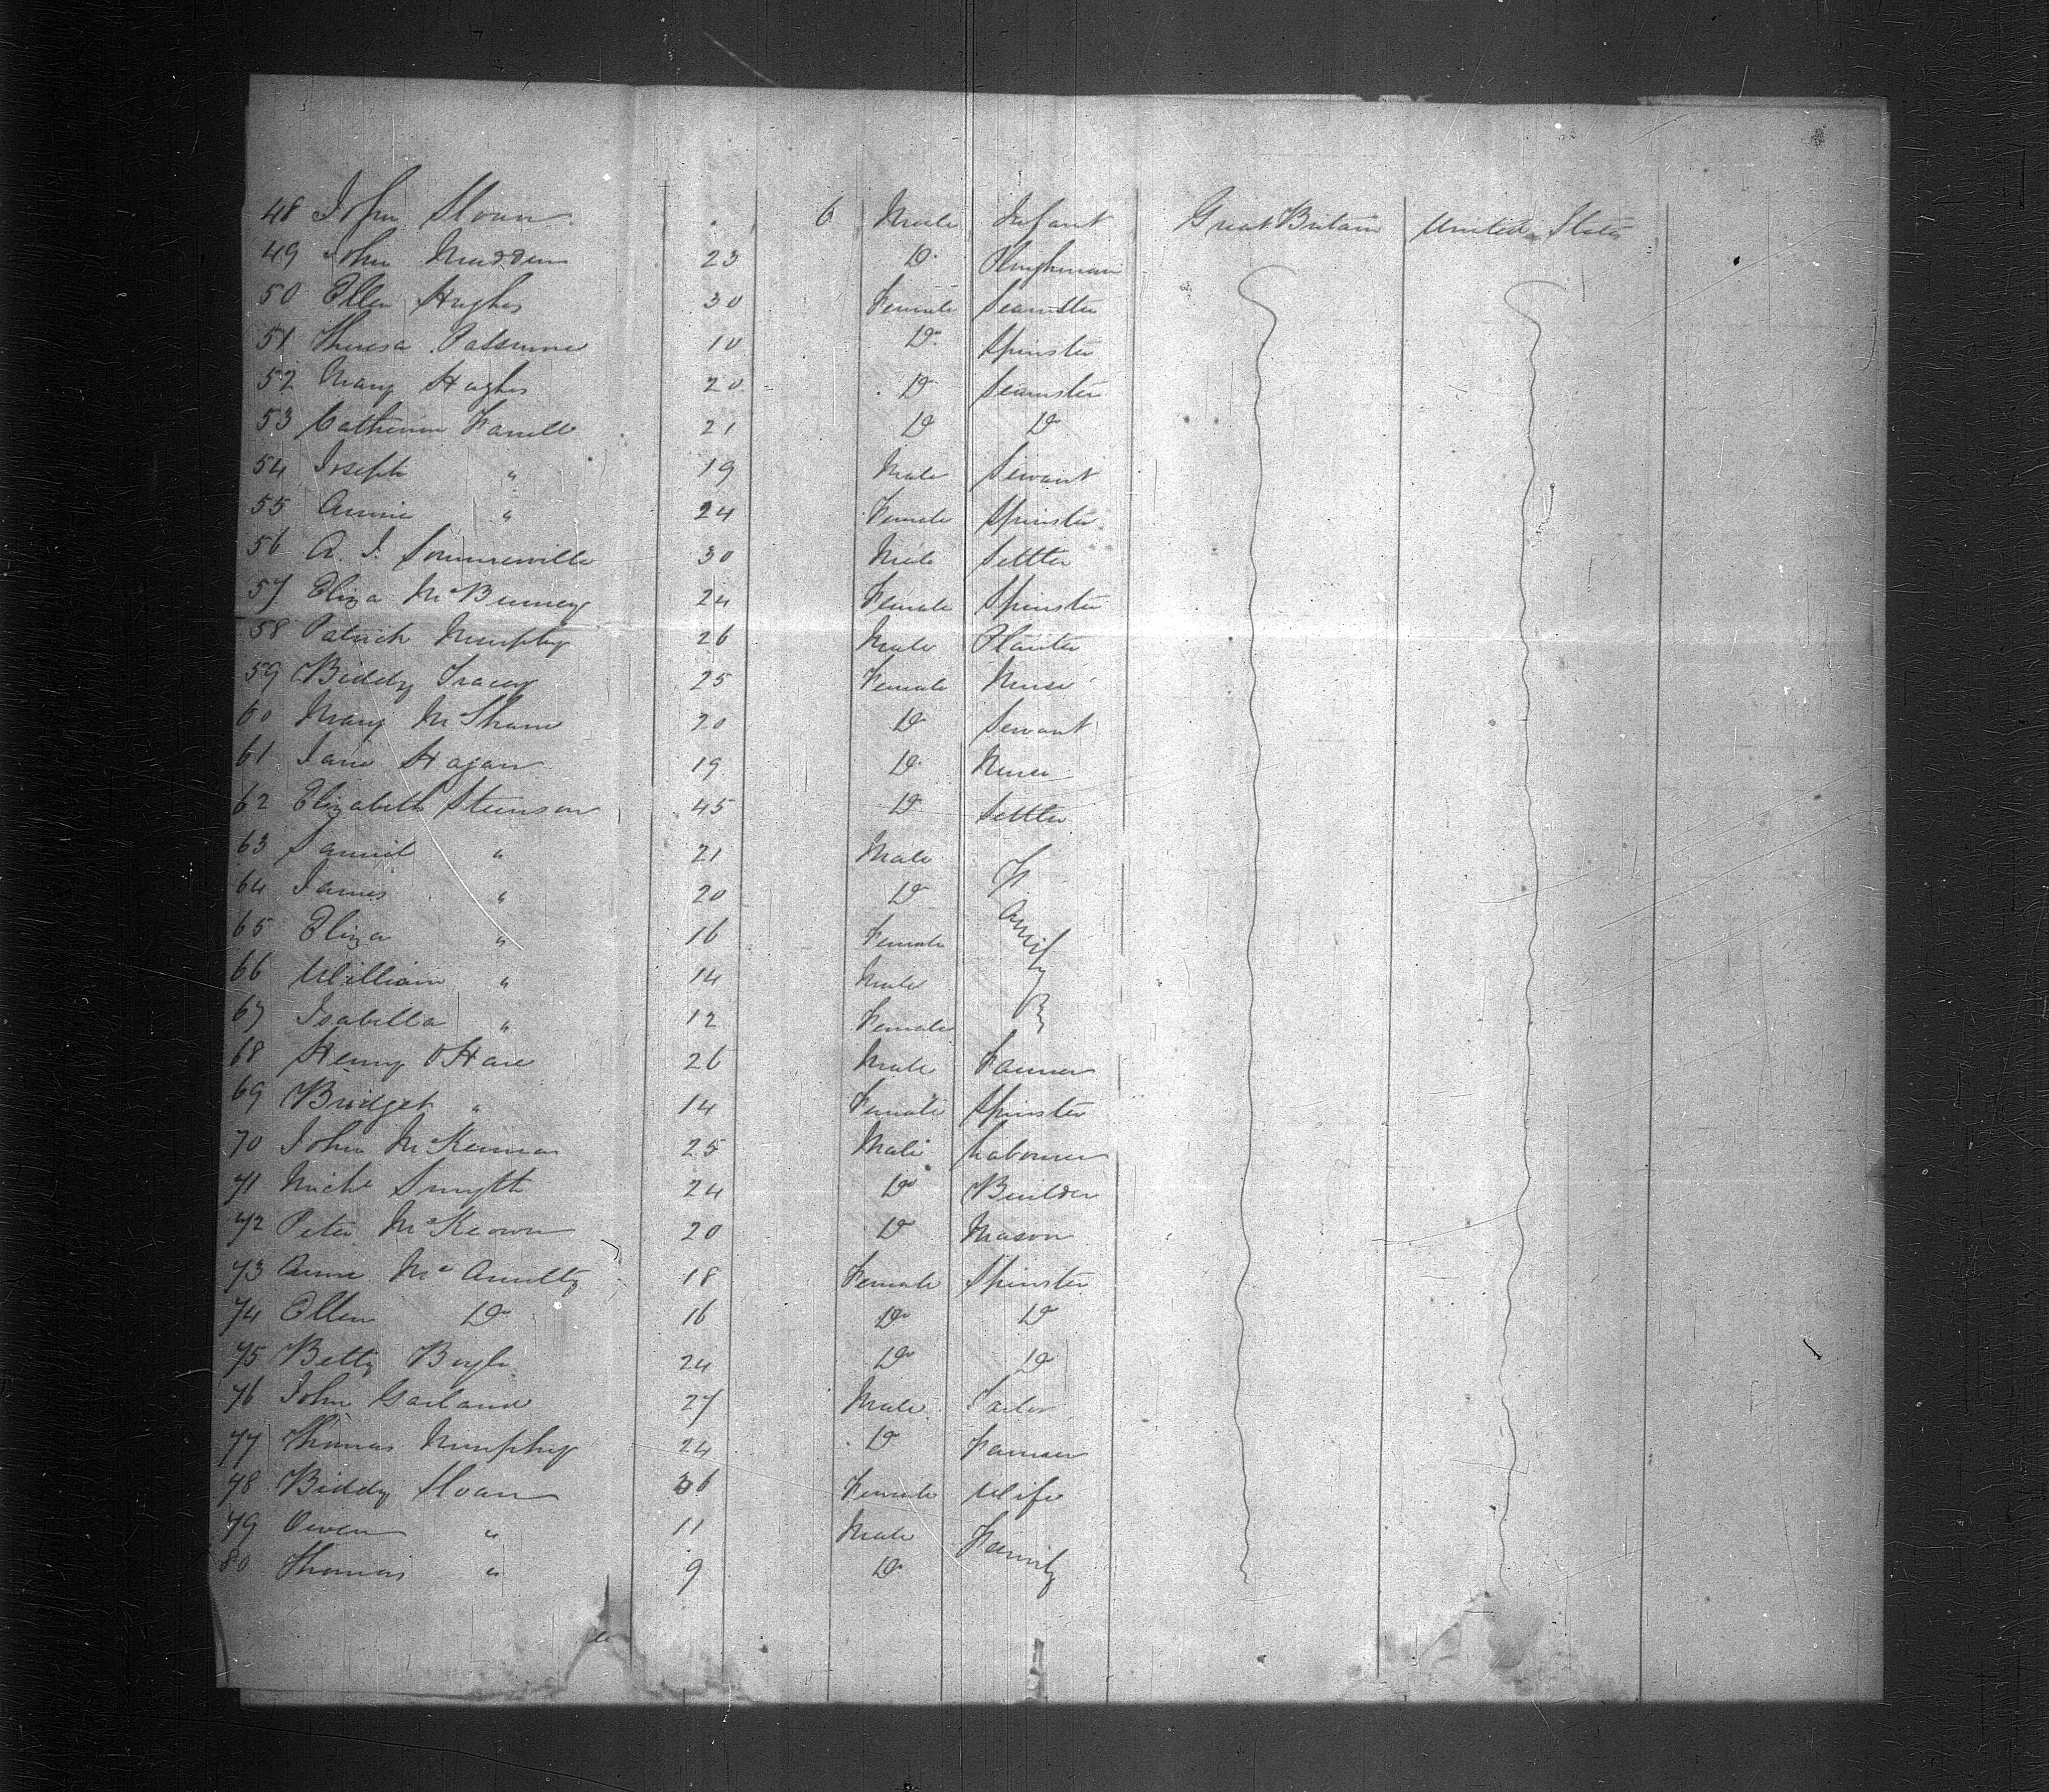 48 John Sloan . 6 Male Infant Great Britain United States
49 John Madden 23 Do Ploughman
50 Ellen Hughes 30 Female Seamster
51 Theresa 10 Do Spinster
52 Mary Hughes 20 Do Seamster
53 Catherine Farrell 21 Do Do
54 Joseph " 19 Male Servant
55 Annie " 24 Female Spinster
56 A. J. Sommerville 30 Male Settler
57 Eliza McBurney 24 Female Spinster
58 Patrick Murphy 26 Male Planter
59 Biddy Tracey 25 Female Nurse
60 Mary McShane 20 Do Servant
61 Jane Hagan 19 Do Nurse
62 Elizabeth Steenson 45 Do Settler
63 Samuel " 21 Male
64 James " 20 Do Family
65 Eliza " 16 Female
66 William " 14 Male
67 Isabella " 12 Female
68 Henry O'Hare 26 Male Farmer
69 Bridget " 14 Female Spinster
70 John McKenna 25 Male Labourer
71 Michl Smyth 24 Do Builder
72 Peter McKeown 20 Do Mason
73 Anne McAnulty 18 Female Spinster
74 Ellen Do 16 Do Do
75 Betty Boyle 24 Do Do
76 John Garland 27 Male
77 Thomas Murphy 24 Do Farmer
78 Biddy Sloan 36 Female Wife
79 Owen " 11 Male Family
80 Thomas " 9 Do